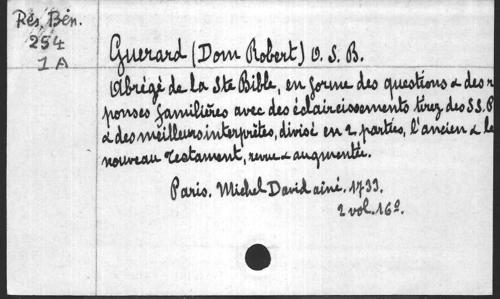 Rés. Bén.
254
1 A
Guerard (Dom Robert) O. S. B.
Abrégé de la Ste Bible, en forme des questions & des r
ponses familières avec des éclaircissements tirez des S.S. P
& des meilleurs interprêtes, divisé en 2 parties, l'ancien & le
nouveau Testament, revu & augmenté.
Paris. Michel David ainé. 1733.
2 vol. 16º.